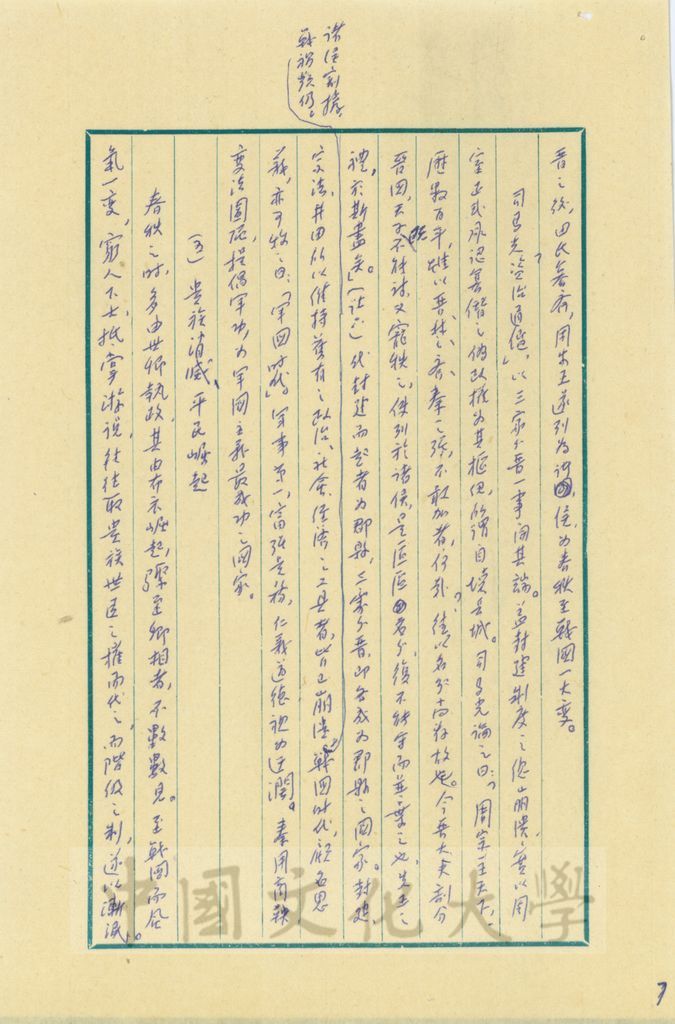 諸侯割據，
戰禍頻仍。
晉之後，田氏篡齊，周安王遂列為諸國侯，為春秋至戰國一大變。
司馬光資治通鑑，以三家分晉一事開其端。蓋封建制度之總崩潰，實以周
室正式承認篡僭之偽政權為其樞紐，所謂自壞長城。司馬光論之曰：「周室天下，
歷數百年，雖以晉、楚、齊、秦之強，不敢加者，何哉？徒以名分尚存故也。今晉大夫剖分
晉國，天子既不能討，又寵秩之，使列於諸侯，是區區名分，復不能守而並棄之也，先王之
禮，於斯盡矣。」代封建而起者為郡縣，三家分晉，即各成為郡縣之國家。封建、
宗法、井田所以維持舊有之政治、社會、經濟之工具者，皆已崩潰。戰國時代，顧名思
義，亦可稱之曰：「軍國時代」，軍事第一，富強是務，仁義道德視為迂濶。秦用商鞅
變法圖强，提倡軍功，為軍國主義最成功之國家。
(五) 貴族消滅、平民崛起
春秋之時，多由世卿執政，其由布衣崛起，驟至卿相者，不數數見。至戰國而風
氣一變，窮人下士，抵掌游說，往往取貴族世臣之權而代之，而階級之制，遂以漸泯。
中國文化大學
7